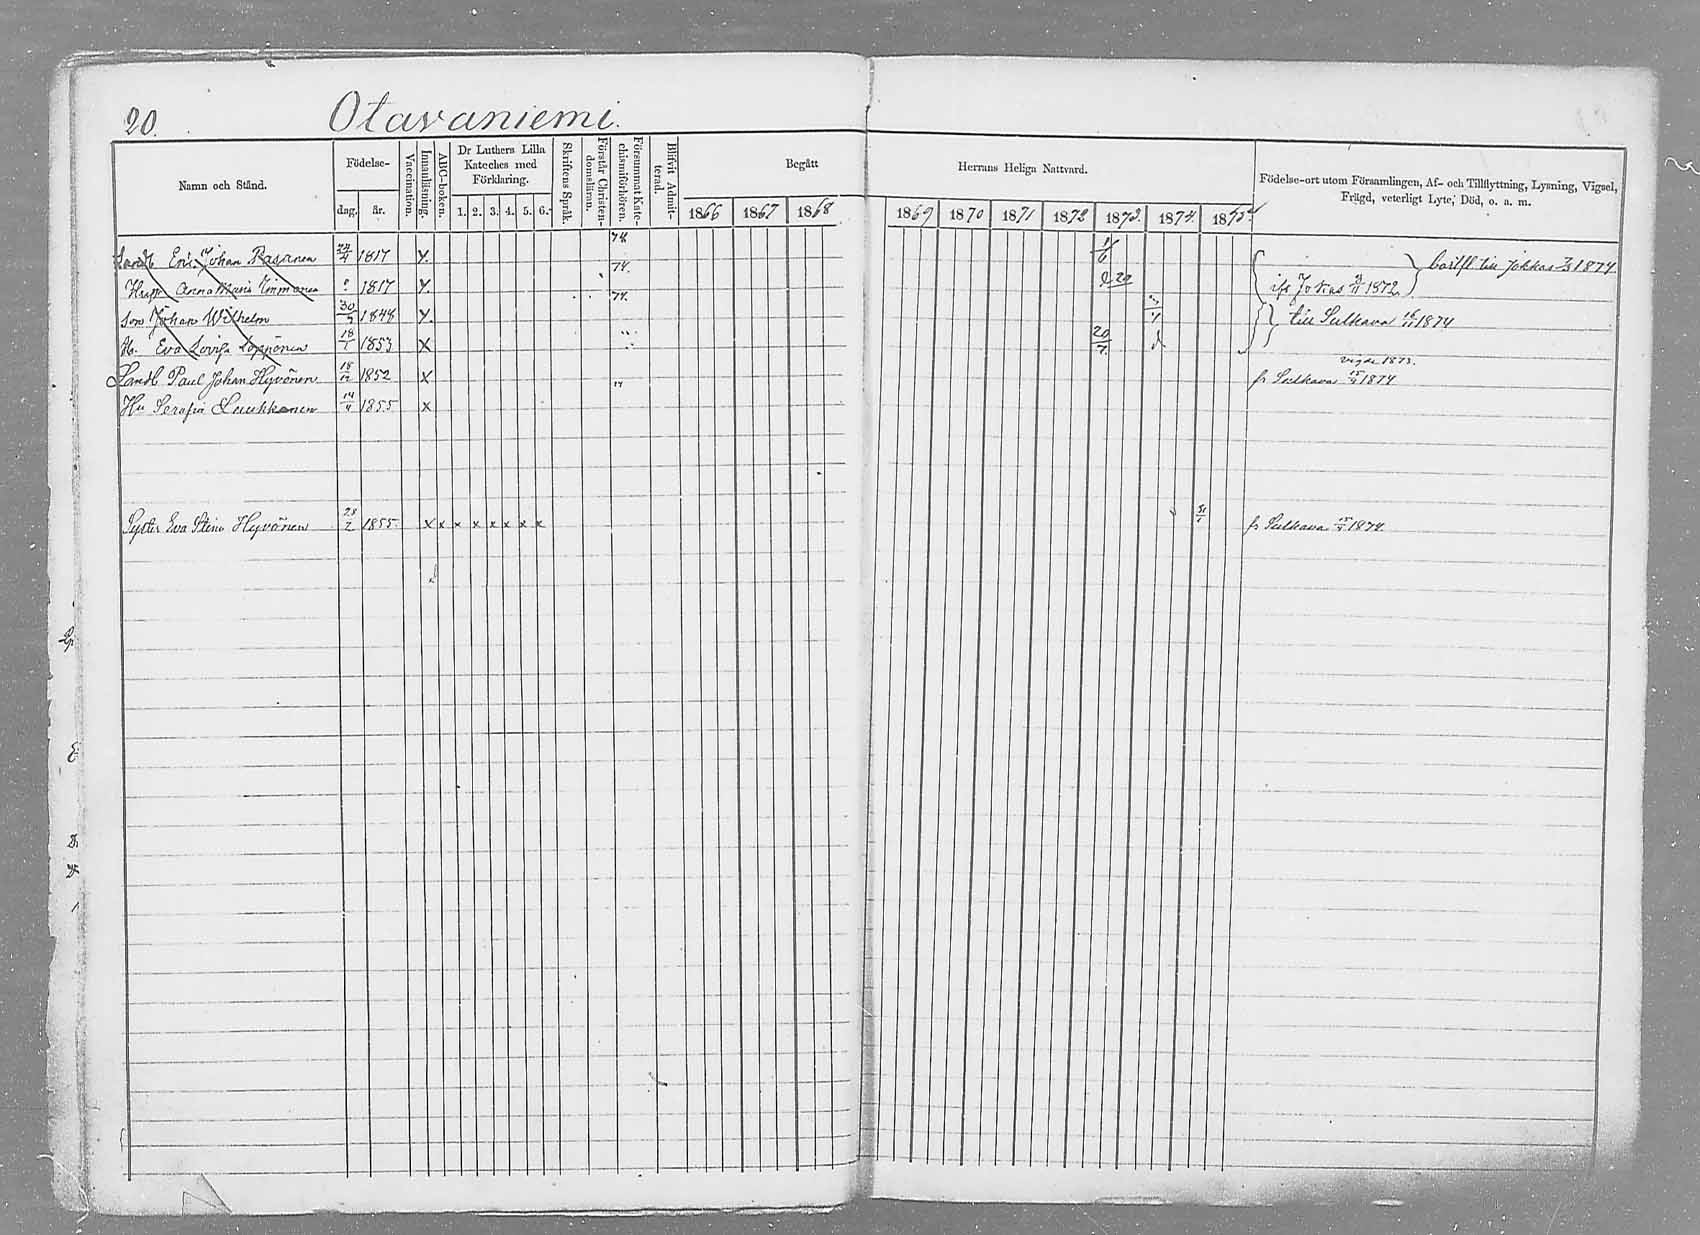 20.
Otavaniemi.
Namn och Stånd.
Födelse-
dag. år.
Vaccination.
Innanläsning.
ABC-boken.
Dr Luthers Lilla
Kateches med
Förklaring.
1. 2. 3. 4. 5. 6.
Skriftens Språk.
Förstår Christen-
domsläran.
Försummat Kate-
chismiförhören.
Blifvit Admit-
terad.
Begått Herrans Heliga Nattvard.
1866 1867 1868 1869 1870 1871 1872 1873. 1874. 1875.
Födelse-ort utom Församlingen, Af- och Tillflyttning, Lysning, Vigsel,
Frägd, veterligt Lyte, Död, o. a. m.
Landb Eric Johan Rasänen 24/4 1817 x. 74. 1/6 bortfl till Jokkas 7/3 1874
Hust Anna Maria Immonen 1817 x. 74. 22 ifr Jokkas 9/11 1872
Son Johan Wilhelm 30/9 1848 x. 74. till Sulkava 16/11 1874
H. Eva Lovisa Loppönen 18/1 1853 x 20/7.
Landb Paul Johan Hyvönen 18/12 1852 x vigde 1873. fr Sulkava 15/3 1874
Hu Serafia Luukkonen 14/11 1855 x
Syster Eva Stina Hyvönen 28/2 1855 x x x x x x x x 31/1 fr Sulkava 15/3 1874.